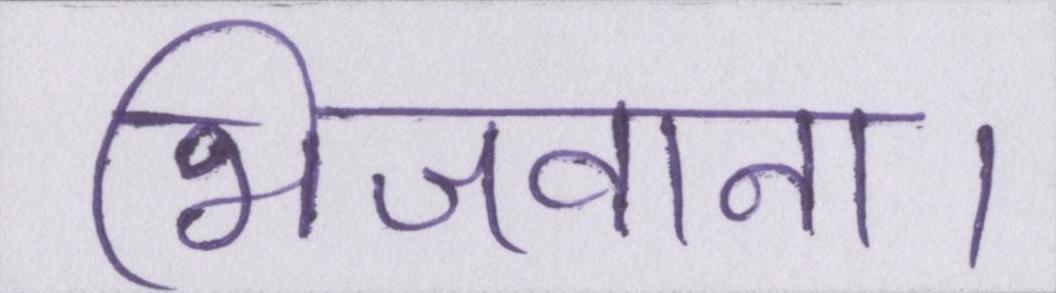 भिजवाना।